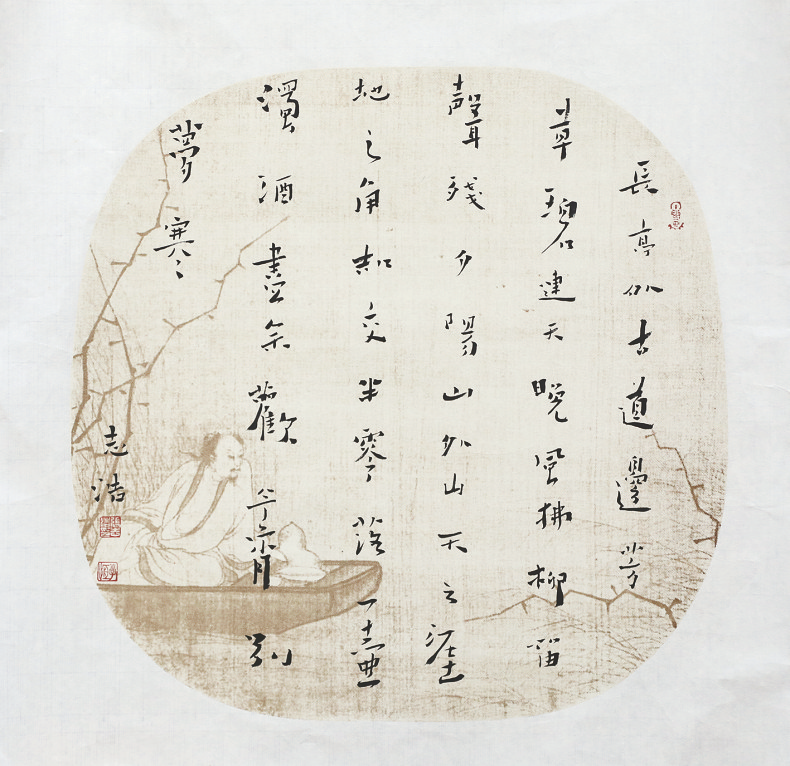 長亭外古道邊芳
草碧連天晚風拂柳笛
聲殘夕陽山外山天之涯
地之角知交半零落一壺
濁酒盡余歡今宵別
夢寒
志浩